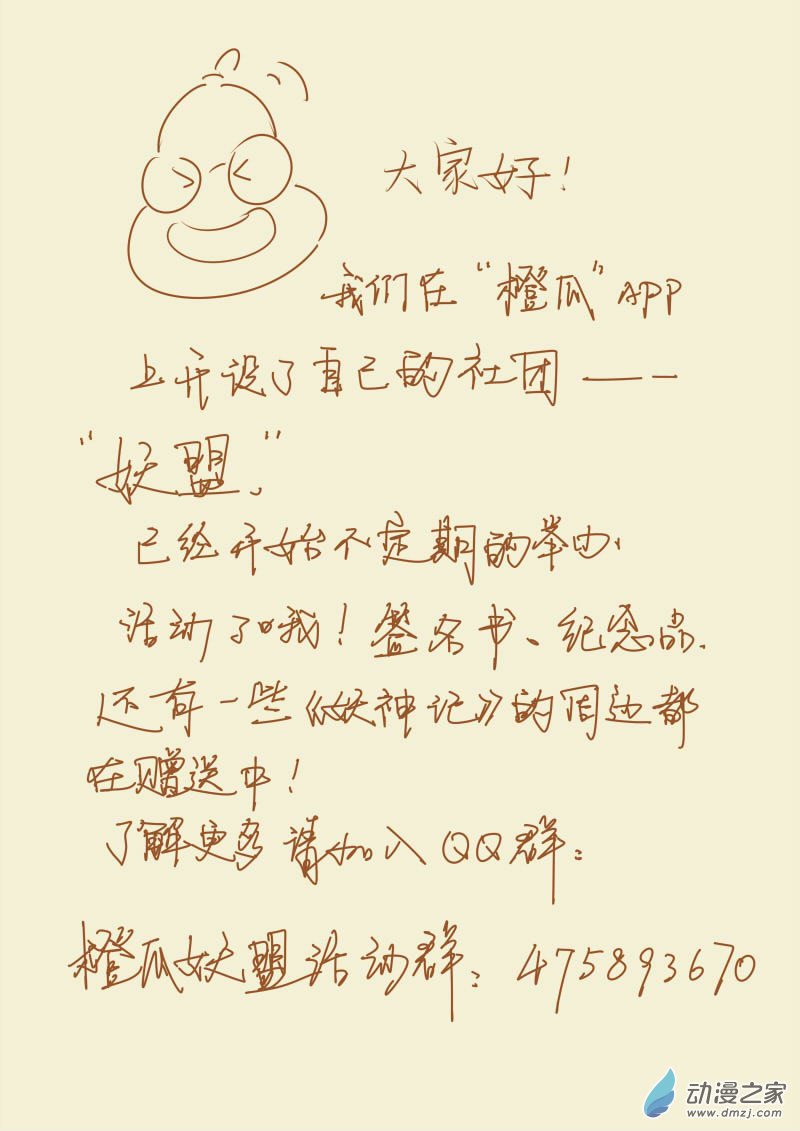 大家好！
我们在“橙瓜”APP
上开设了自己的社团——
“妖盟”
已经开始不定期的举办
活动了哦！签名书、纪念品、
还有一些《妖神记》的周边都
在赠送中！
了解更多请加入QQ群：
橙瓜妖盟活动群：475893670
动漫之家
www.dmzj.com